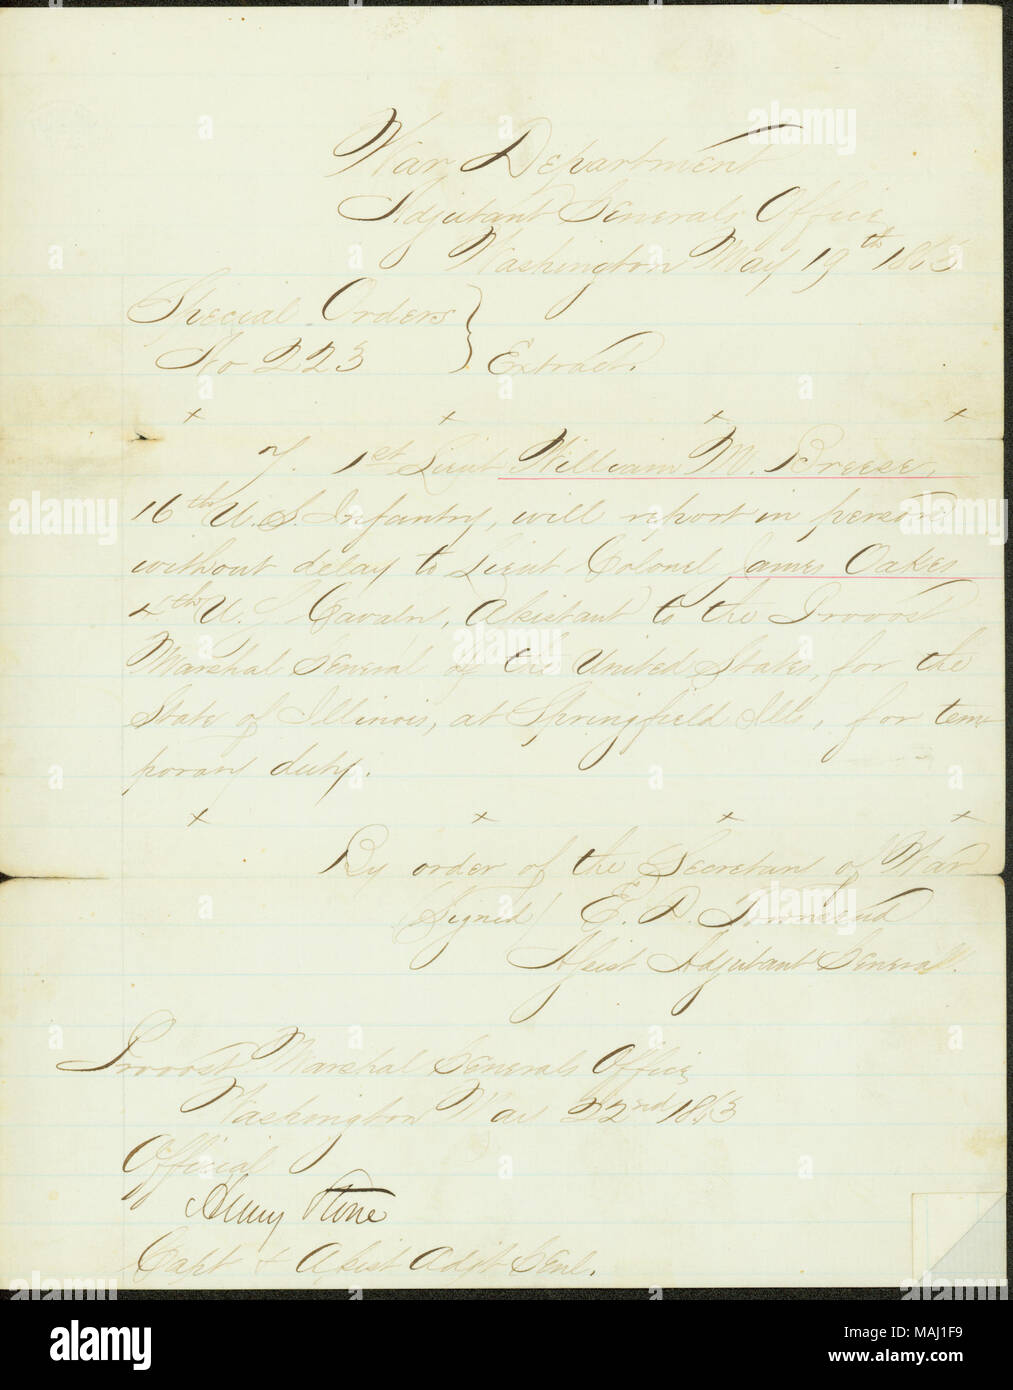 War Department
Adjutant Generals Office
Washington May 19th 1863
Special Orders
No 223 } Extract.
x x x x
7. 1st Lieut William M. Breese,
16th U. S. Infantry, will report in person
without delay to Lieut Colonel James Oakes
4th U. S. Cavalry, Assistant to the Provost
Marshal General of the United States, for the
State of Illinois, at Springfield Ills, for tem-
porary duty.
x x x x
By order of the Secretary of War
(Signed) E. D. Townsend
Assist Adjutant General.
Provost Marshal Generals Office
Washington May 22nd 1863
Official
Henry Stone
Capt & Assist Adjt Genl.
alamy
Image ID: MAJ1F9
www.alamy.com